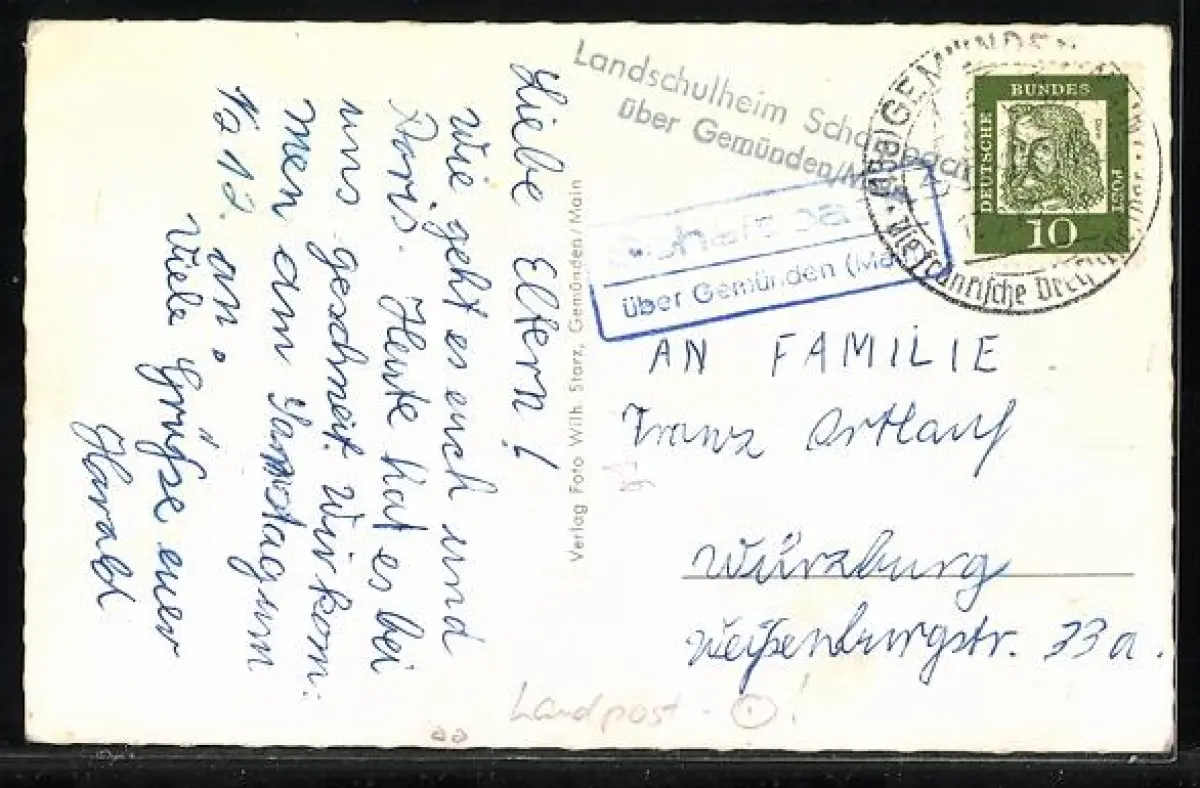 Liebe Eltern!
Wie geht es euch und
Doris. Heute hat es bei
uns geschneit. Wir kom-
men am Samstag um
an.
Viele Grüße euer
Harald
Verlag Foto Wilh. Starz, Gemünden/Main
Landschulheim
über Gemünden/Main
über Gemünden (Main)
GEMÜNDEN
DEUTSCHE
BUNDES
POST
10
AN FAMILIE
Franz Ortlauf
Würzburg
Weißenburgstr. 33a.
Landpost - 1!